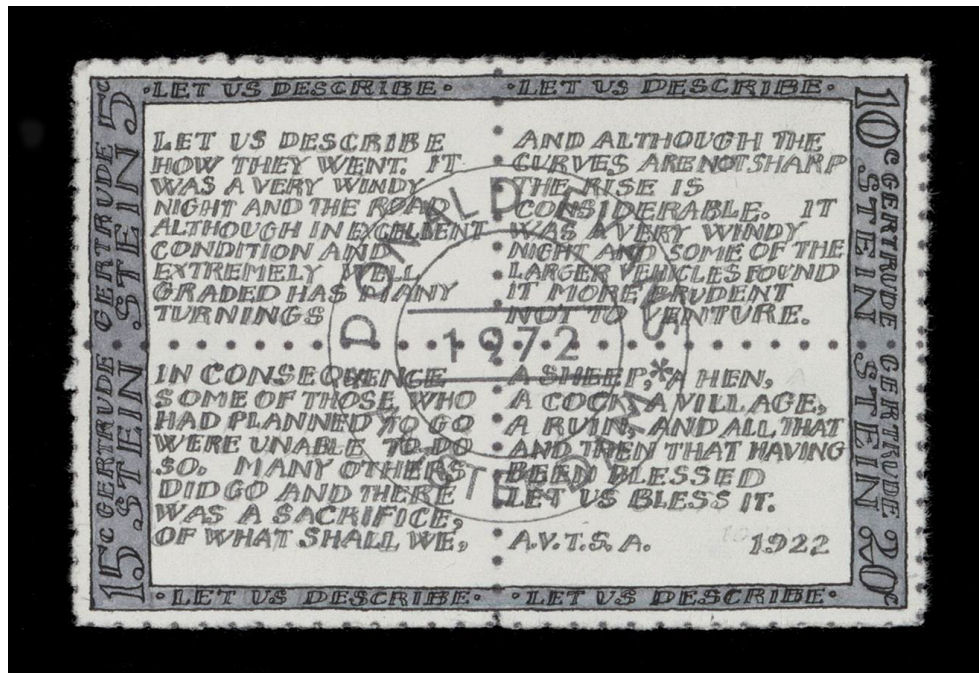 ·LET US DESCRIBE· ·LET US DESCRIBE·
5c GERTRUDE STEIN
10c GERTRUDE STEIN
LET US DESCRIBE
HOW THEY WENT. IT
WAS A VERY WINDY
NIGHT AND THE ROAD
ALTHOUGH IN EXCELLENT
CONDITION AND
EXTREMELY WELL
GRADED HAS MANY
TURNINGS
AND ALTHOUGH THE
CURVES ARE NOT SHARP
THE RISE IS
CONSIDERABLE. IT
WAS A VERY WINDY
NIGHT AND SOME OF THE
LARGER VEHICLES FOUND
IT MORE PRUDENT
NOT TO VENTURE.
DONALD EVANS
1972
15c GERTRUDE STEIN
20c GERTRUDE STEIN
IN CONSEQUENCE
SOME OF THOSE WHO
HAD PLANNED TO GO
WERE UNABLE TO DO
SO. MANY OTHERS
DID GO AND THERE
WAS A SACRIFICE,
OF WHAT SHALL WE,
A SHEEP, A HEN,
A COCK, A VILLAGE,
A RUIN, AND ALL THAT
AND THEN THAT HAVING
BEEN BLESSED
LET US BLESS IT.
A.V.T.S.A. 1922
·LET US DESCRIBE· ·LET US DESCRIBE·